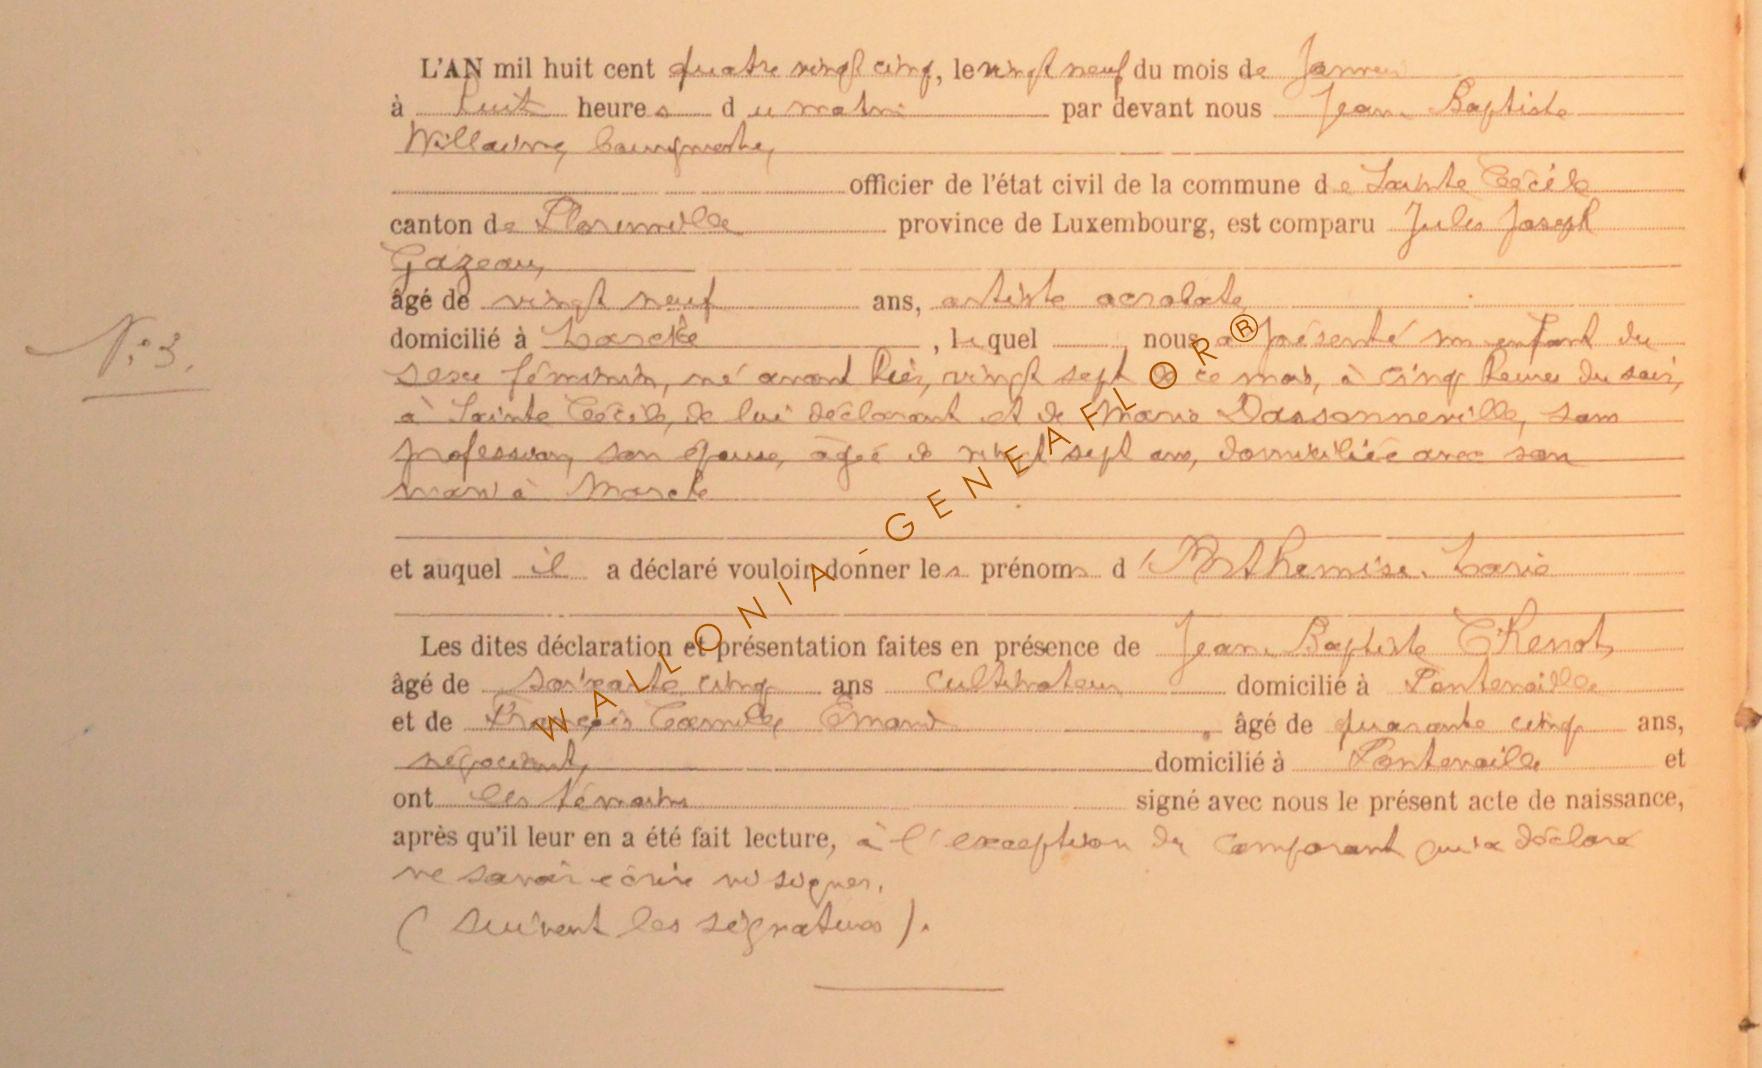 L'AN mil huit cent quatre vingt cinq, le vingt neuf du mois de Janvier
à huit heures du matin par devant nous Jean Baptiste
Willaime, bourgmestre,
officier de l'état civil de la commune de Sainte Cécile
canton de Florenville province de Luxembourg, est comparu Jules Joseph
Gazeau,
âgé de vingt neuf ans, artiste acrobate
domicilié à , lequel nous a présenté un enfant du
N° 3.
sexe féminin, né avant hier, vingt sept de ce mois, à cinq heures du soir,
à Sainte Cécile, de lui déclarant et de Marie Dassonneville, sans
profession, son épouse, âgée de vingt sept ans, domiciliée avec son
mari à
et auquel il a déclaré vouloir donner les prénoms d'Arthemise Marie
Les dites déclaration et présentation faites en présence de Jean Baptiste Thenot,
âgé de soixante cinq ans cultivateur domicilié à Fontenoille
et de François Camille Émond, âgé de quarante cinq ans,
négociant, domicilié à Fontenoille et
ont les témoins signé avec nous le présent acte de naissance,
après qu'il leur en a été fait lecture, à l'exception du comparant qui a déclaré
ne savoir écrire ni signer.
(suivent les signatures).
WALLONIA-GENEAFLOR®